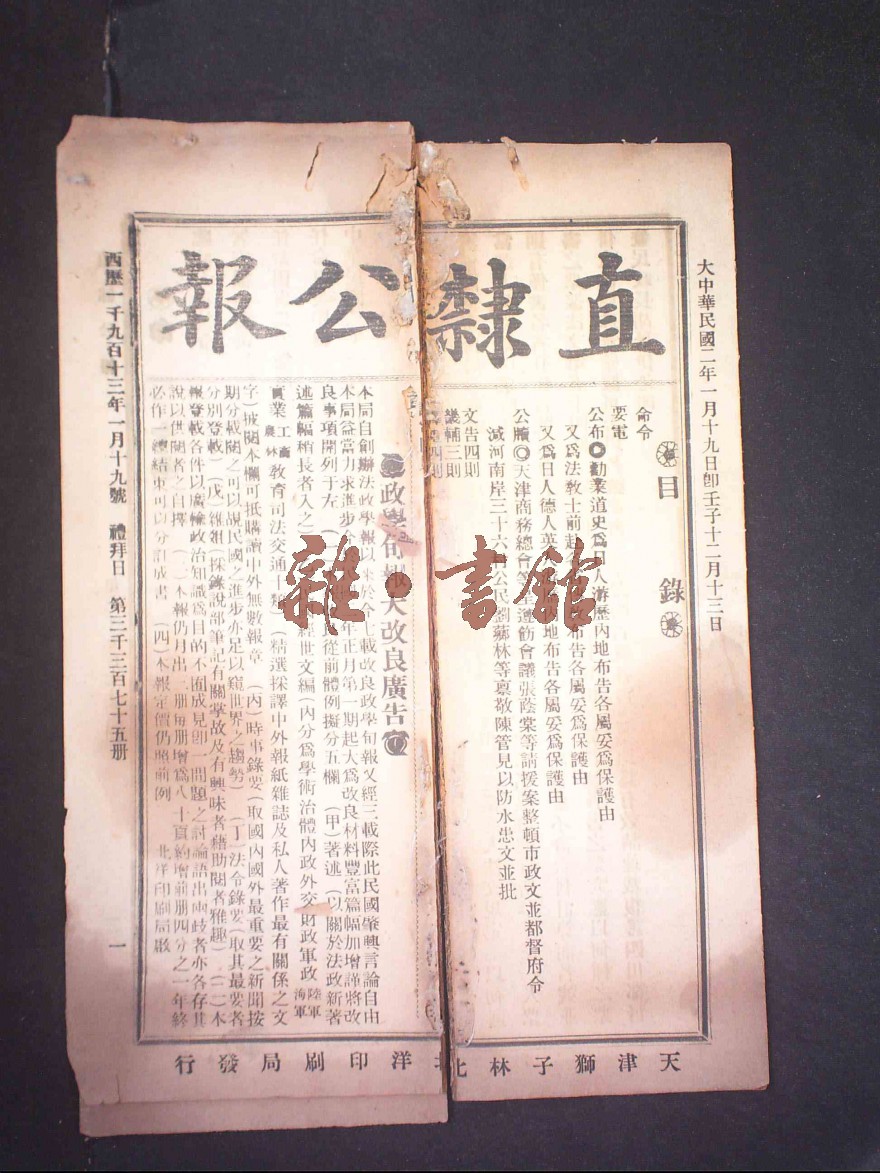 大中華民國二年一月十九日卽壬子十二月十三日
直隸公報
目錄
命令
要電
公布●勸業道史爲日人游歷內地布告各屬妥爲保護由
又爲法敎士前赴 布告各屬妥爲保護由
又爲日人德人英 內地布告各屬妥爲保護由
公牘◎天津商務總會 遵飭會議張蔭棠等請援案整頓市政文並都督府令
滅河南岸三十六 公民劉蘇林等稟敬陳管見以防水患文並批
文告四則
畿輔三則
四則
政學旬報大改良廣告
本局自創辦法政學報以來於今七載改良政學旬報又經三載際此民國肇興言論自由
本局益當力求進步 年正月第一期起大爲改良材料豐富篇幅加增謹將改
良事項開列于左 從前體例擬分五欄 (甲)著述(以關於法政新著
述篇幅稍長者入之) 經世文編(內分爲學術治體內政外交財政軍政陸軍海軍
實業工商農林敎育司法交通十類)(精選採譯中外報紙雜誌及私人著作最有關係之文
字)披閱本欄可抵購讀中外無數報章 (丙)時事錄要(取國內國外最重要之新聞按
期分載閱之可以覘民國之進步亦足以窺世界之趨勢) (丁)法令錄要(取其最要者
分別登載) (戊)雜俎(採錄說部筆記有關掌故及有興味者藉助閱者雅趣) (二)本
報登載各件以廣輸政治知識爲目的不囿成見卽一問題之討論語出兩歧者亦各存其
說以供閱者之自擇 (三)本報仍月出三册每册增爲八十頁約增前册四分之一年終
必作一總結束可以分訂成書 (四)本報定價仍照前例 北洋印刷局啟
西歷一千九百十三年一月十九號 禮拜日 第三千三百七十五册
一
天津獅子林北洋印刷局發行
雜·書館